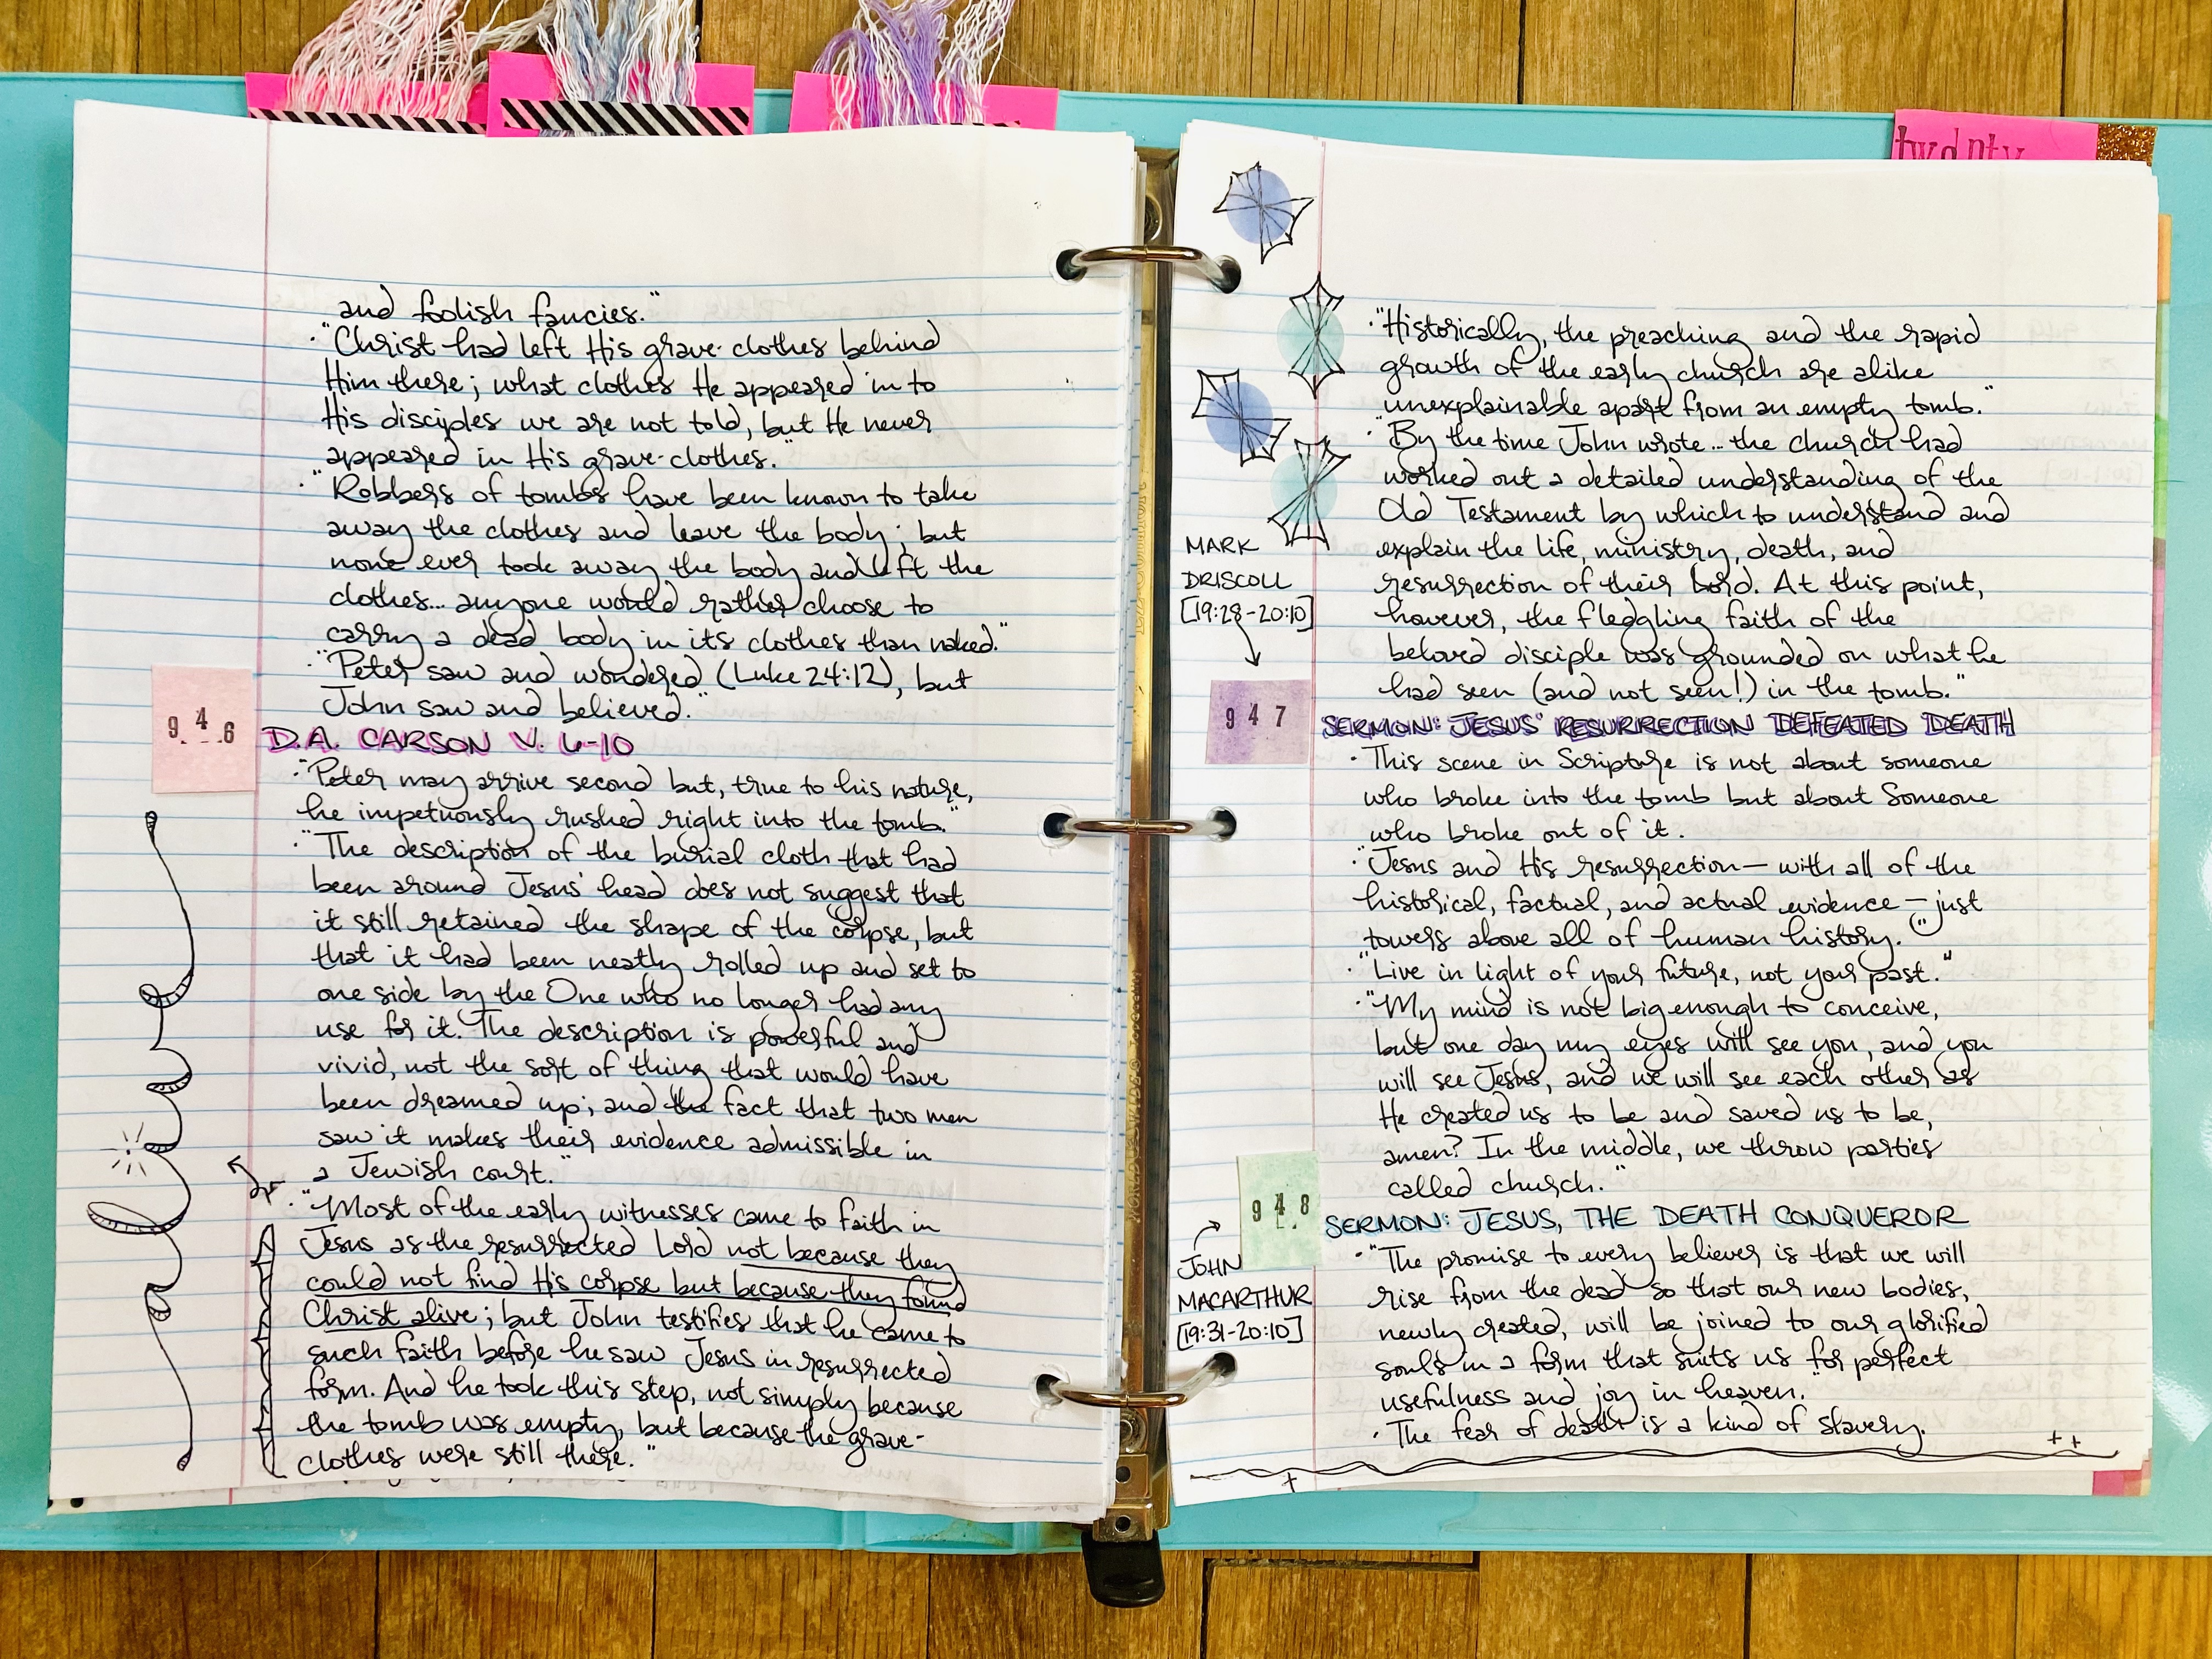 twenty
and foolish fancies."
· "Christ had left His grave-clothes behind
Him there; what clothes He appeared in to
His disciples we are not told, but He never
appeared in His grave-clothes."
· "Robbers of tombs have been known to take
away the clothes and leave the body; but
none ever took away the body and left the
clothes... anyone would rather choose to
carry a dead body in its clothes than naked."
· "Peter saw and wondered (Luke 24:12), but
John saw and believed."
946
D.A. CARSON V. 6-10
· "Peter may arrive second but, true to his nature,
he impetuously rushed right into the tomb."
· "The description of the burial cloth that had
been around Jesus' head does not suggest that
it still retained the shape of the corpse, but
that it had been neatly rolled up and set to
one side by the One who no longer had any
use for it. The description is powerful and
vivid, not the sort of thing that would have
been dreamed up; and the fact that two men
saw it makes their evidence admissible in
a Jewish court."
· "Most of the early witnesses came to faith in
Jesus as the resurrected Lord not because they
could not find His corpse but because they found
Christ alive; but John testifies that he came to
such faith before he saw Jesus in resurrected
form. And he took this step, not simply because
the tomb was empty, but because the grave-
clothes were still there."
· "Historically, the preaching and the rapid
growth of the early church are alike
unexplainable apart from an empty tomb."
· "By the time John wrote... the church had
worked out a detailed understanding of the
Old Testament by which to understand and
explain the life, ministry, death, and
resurrection of their Lord. At this point,
however, the fledgling faith of the
beloved disciple was grounded on what he
had seen (and not seen!) in the tomb."
MARK
DRISCOLL
[19:28-20:10]
947
SERMON: JESUS' RESURRECTION DEFEATED DEATH
· This scene in Scripture is not about someone
who broke into the tomb but about Someone
who broke out of it.
· "Jesus and His resurrection — with all of the
historical, factual, and actual evidence — just
towers above all of human history."
· "Live in light of your future, not your past."
· "My mind is not big enough to conceive,
but one day my eyes will see you, and you
will see Jesus, and we will see each other as
He created us to be and saved us to be,
amen? In the middle, we throw parties
called church."
948
JOHN
MACARTHUR
[19:31-20:10]
SERMON: JESUS, THE DEATH CONQUEROR
· "The promise to every believer is that we will
rise from the dead so that our new bodies,
newly created, will be joined to our glorified
souls in a form that suits us for perfect
usefulness and joy in heaven."
· The fear of death is a kind of slavery.